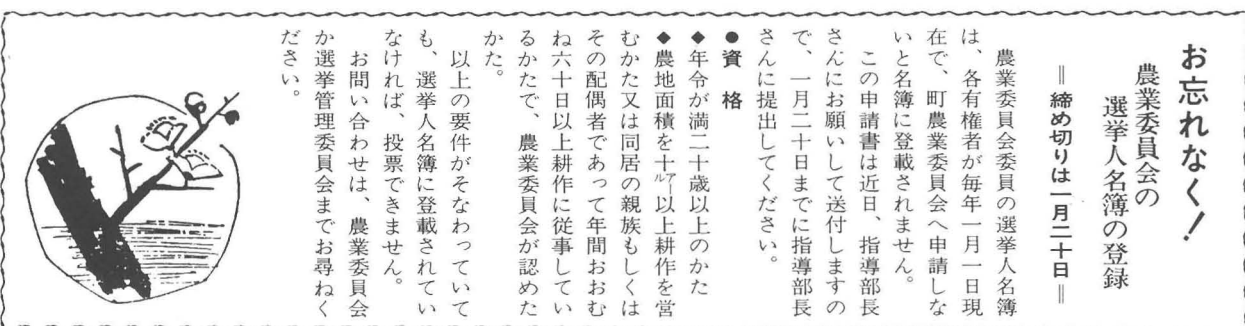 お忘れなく！
農業委員会の
選挙人名簿の登録
＝締め切りは一月二十日＝
農業委員会委員の選挙人名簿
は、各有権者が毎年一月一日現
在で、町農業委員会へ申請しな
いと名簿に登載されません。
この申請書は近日、指導部長
さんにお願いして送付しますの
で、一月二十日までに指導部長
さんに提出してください。
●資格
◆年令が満二十歳以上のかた
◆農地面積を十アール以上耕作を営
むかた又は同居の親族もしくは
その配偶者であって年間おおむ
ね六十日以上耕作に従事してい
るかたで、農業委員会が認めた
かた。
以上の要件がそなわっていて
も、選挙人名簿に登載されてい
なければ、投票できません。
お問い合わせは、農業委員会
か選挙管理委員会までお尋ねく
ださい。